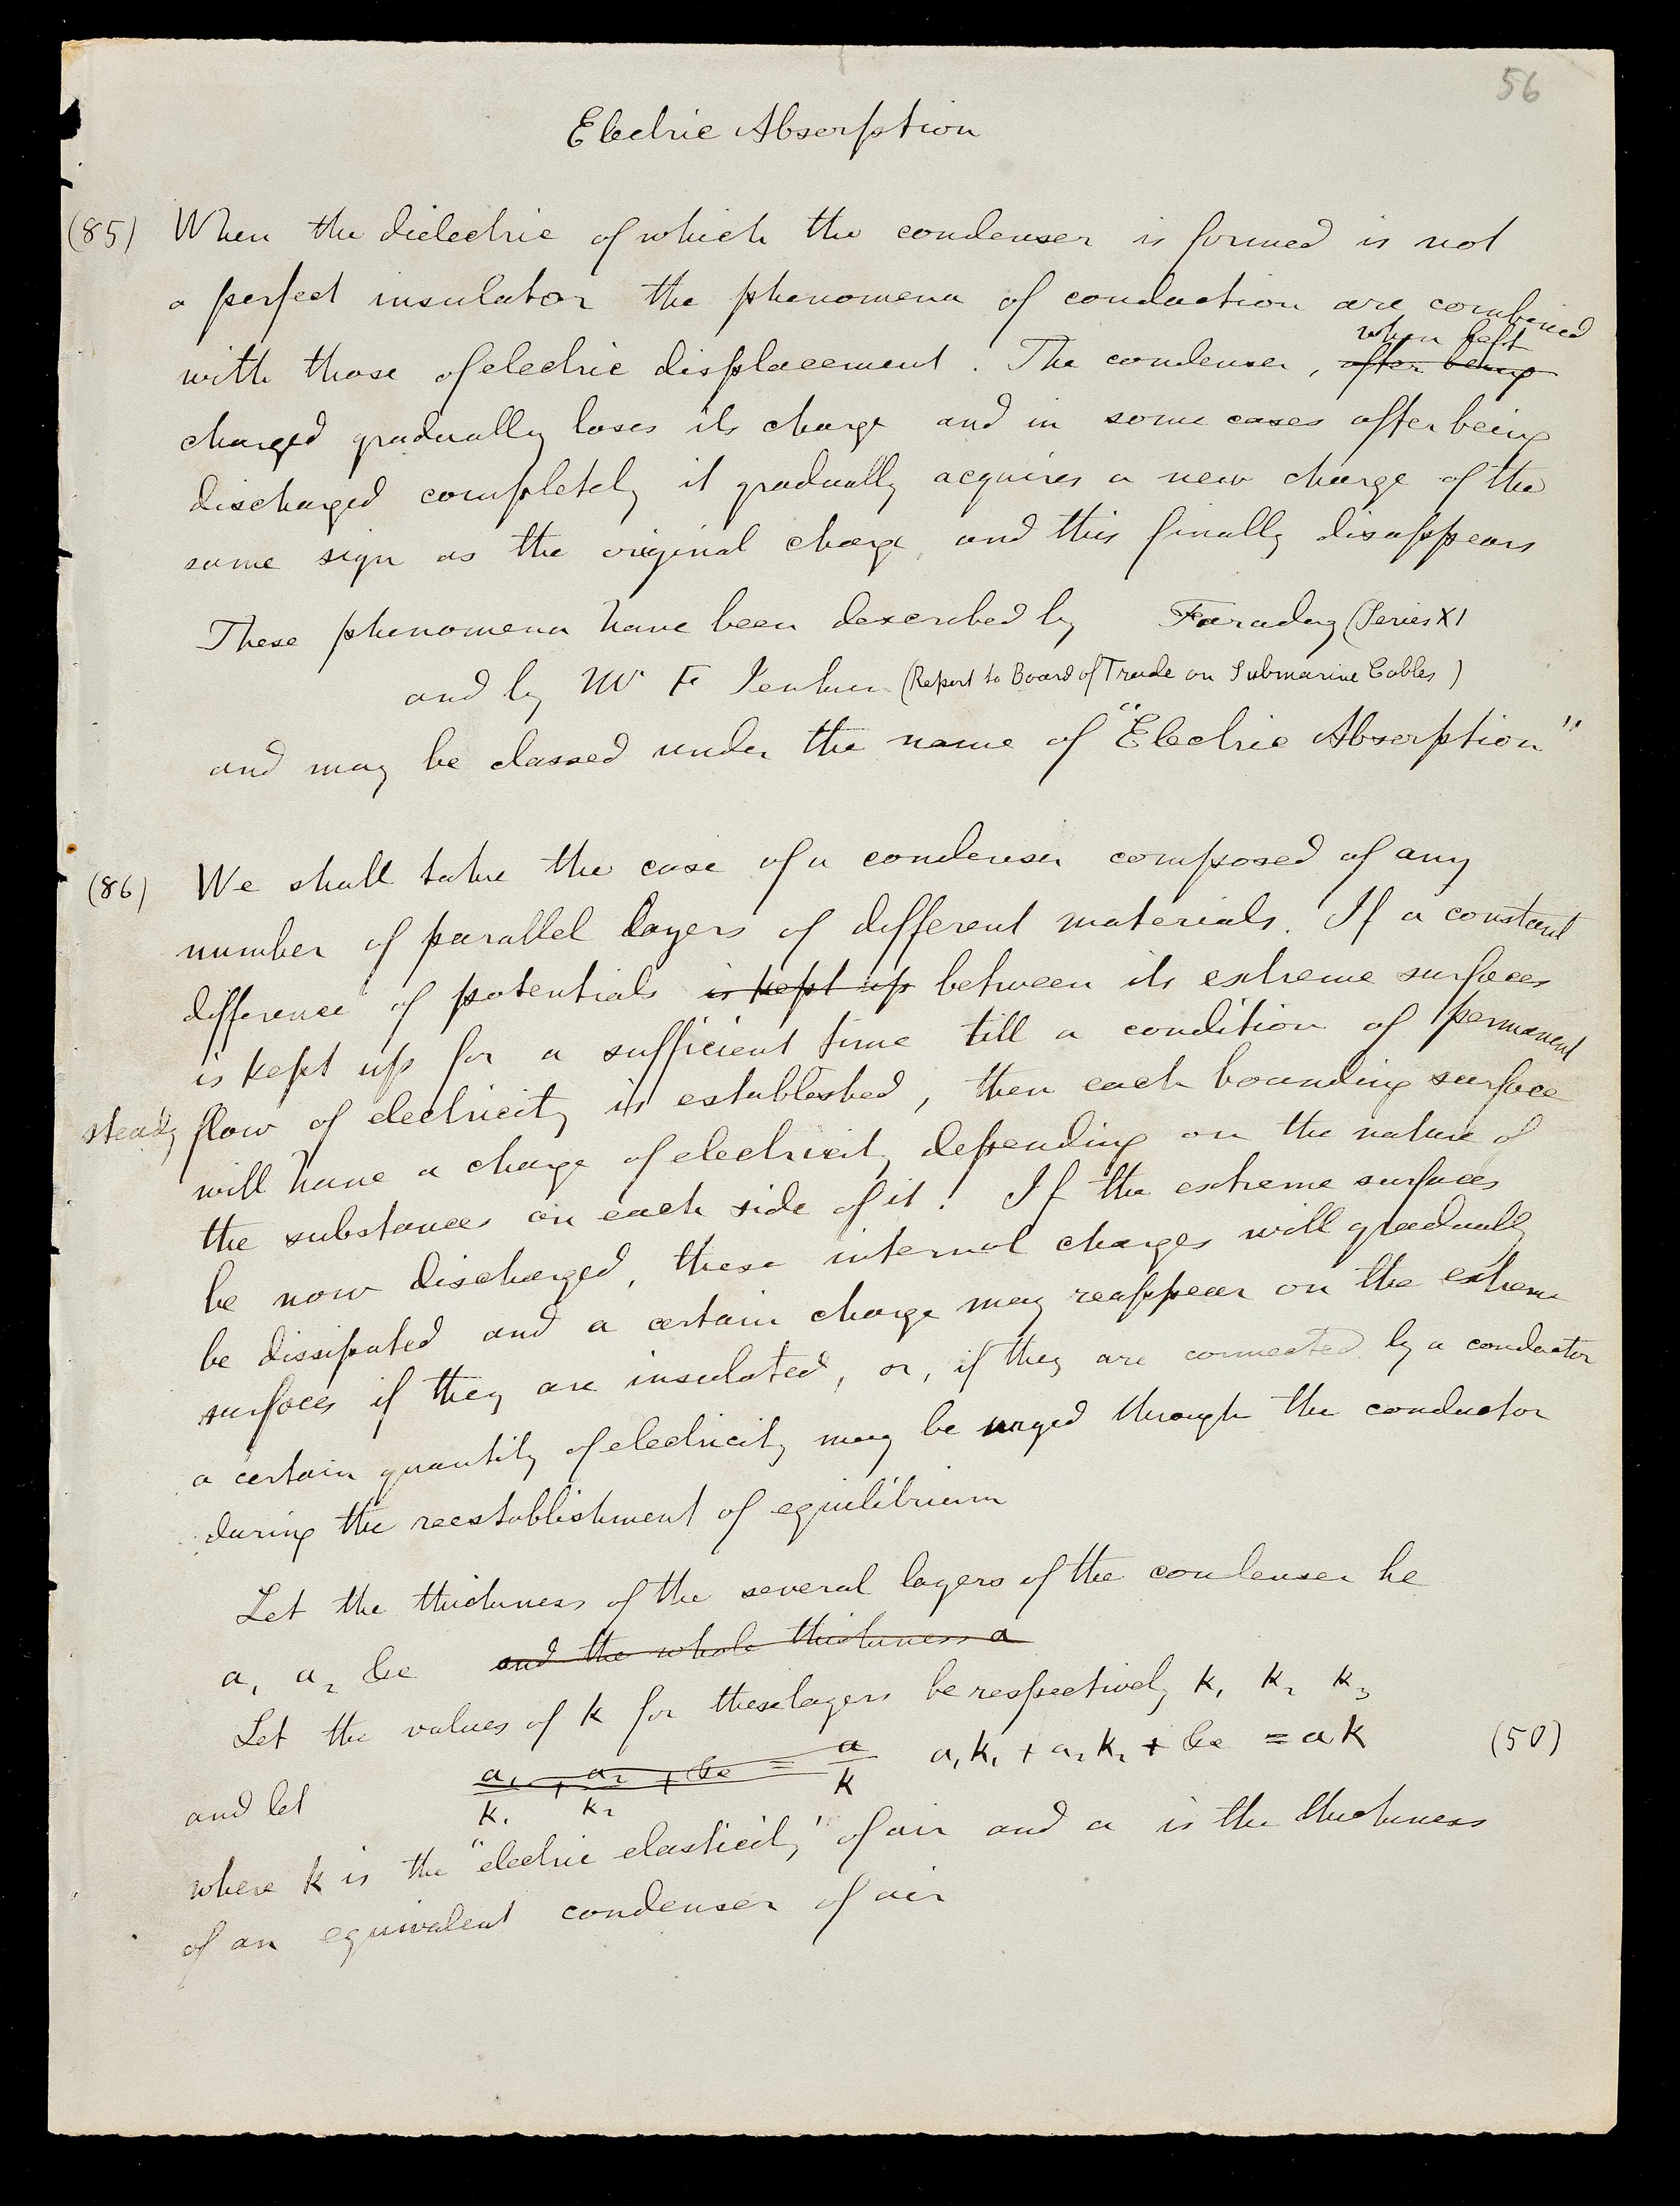 56
Electric Absorption
(85) When the dielectric of which the condenser is formed is not
a perfect insulator the phenomena of conduction are combined
when left
with those of electric displacement. The condenser, after being
charged gradually loses its charge and in some cases after being
discharged completely it gradually acquires a new charge of the
same sign as the original charge, and this finally disappears
These phenomena have been described by Faraday (Series XI
and by Mr F Jenkin (Report to Board of Trade on Submarine Cables)
and may be classed under the name of "Electric Absorption"
(86) We shall take the case of a condenser composed of any
number of parallel layers of different materials. If a constant
difference of potentials is kept up between its extreme surfaces
is kept up for a sufficient time till a condition of permanent
steady flow of electricity is established, then each bounding surface
will have a charge of electricity depending on the nature of
the substances on each side of it. If the extreme surfaces
be now discharged, these internal charges will gradually
be dissipated and a certain charge may reappear on the extreme
surfaces if they are insulated, or, if they are connected by a conductor
a certain quantity of electricity may be urged through the conductor
during the reestablishment of equilibrium
Let the thickness of the several layers of the condenser be
a₁ a₂ &c and the whole thickness a
Let the values of k for these layers be respectively k₁ k₂ k₃
and let a₁/k₁ + a₂/k₂ + &c = a/k a₁k₁ + a₂k₂ + &c = ak (50)
where k is the "electric elasticity" of air and a is the thickness
of an equivalent condenser of air